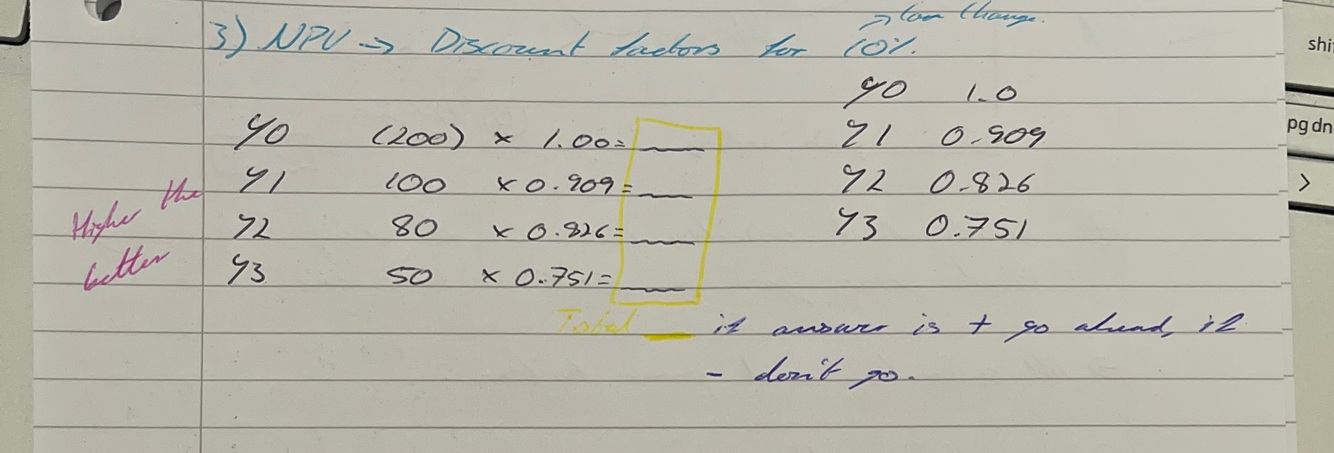 → can change.
3) NPV → Discount factors for 10%.
Y0 1.0
Y0 (200) × 1.00=
Y1 0.909
Y1 100 × 0.909=
Y2 0.826
Y2 80 × 0.826=
Y3 0.751
Y3 50 × 0.751=
Higher the
better
Total if answer is + go ahead, if
- don't go.
shi
pg dn
>